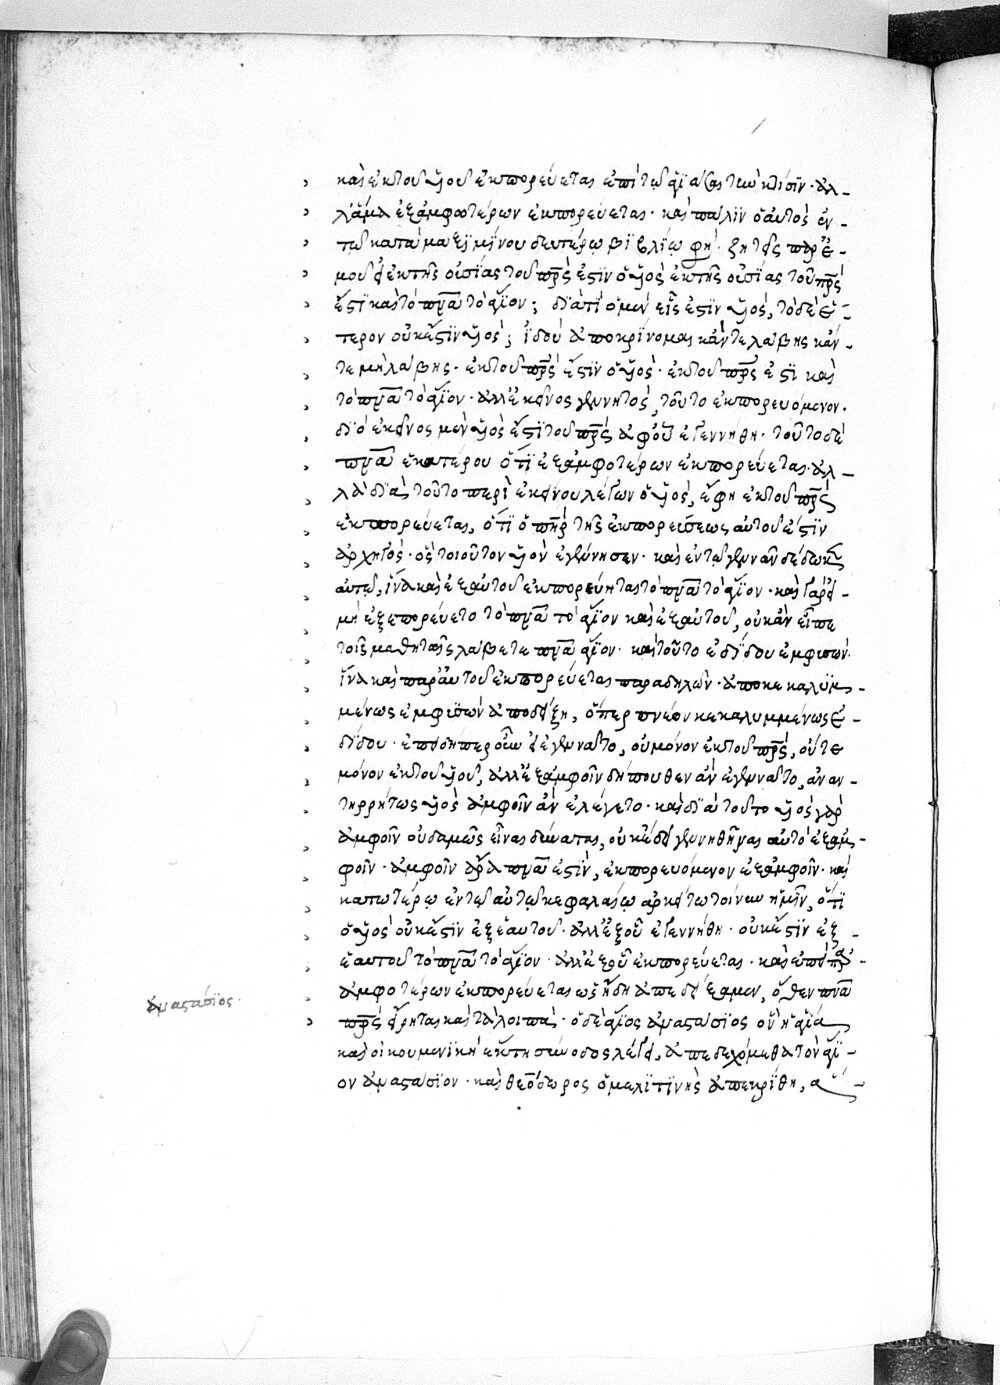 καὶ ἐκ τοῦ υἱοῦ ἐκπορεύεται ἐπὶ τῷ ἁγιάσαι τὴν κτίσιν· ἀλ-
λ' ἅμα ἐξ ἀμφοτέρων ἐκπορεύεται· καὶ πάλιν ὁ αὐτὸς ἐν
τῷ κατὰ μαξιμίνου δευτέρῳ βιβλίῳ φη· ζητεῖς παρ' ἐ-
μοῦ εἰ ἐκ τῆς οὐσίας τοῦ πρς ἐστιν ὁ υἱὸς, ἐκ τῆς οὐσίας τοῦ πρς
ἐστὶ καὶ τὸ πνα τὸ ἅγιον; διατί ὁ μὲν εἷς ἐστιν υἱός, τὸ δὲ ἕ-
τερον οὐκ ἔστιν υἱός; ἰδοὺ ἀποκρίνομαι κἄν τε λάβης κἄν
τε μὴ λάβης· ἐκ τοῦ πρς ἐστιν ὁ υἱός· ἐκ τοῦ πρς ἐστὶ καὶ
τὸ πνα τὸ ἅγιον· ἀλλ' ἐκεῖνος γεννητός, τοῦτο ἐκπορευόμενον·
διὸ ἐκεῖνος μὲν υἱός ἐστι τοῦ πρς ἀφ' οὗ ἐγεννήθη· τοῦτο δὲ
πνα ἑκατέρου ὅτι ἐξ ἀμφοτέρων ἐκπορεύεται· ἀλ-
λὰ διὰ τοῦτο περὶ ἐκείνου λέγων ὁ υἱός, ἔφη ἐκ τοῦ πρς
ἐκπορεύεται, ὅτι ὁ πηρ τῆς ἐκπορεύσεως αὐτοῦ ἐστιν
ἀρχηγός· ὃς τοιοῦτον υἱὸν ἐγέννησεν· καὶ ἐν τῷ γεννᾶν δέδωκεν
αὐτῷ, ἵνα καὶ ἐξ αὐτοῦ ἐκπορεύηται τὸ πνα τὸ ἅγιον· καὶ γὰρ εἰ
μὴ ἐξεπορεύετο τὸ πνα τὸ ἅγιον καὶ ἐξ αὐτοῦ, οὐκ ἂν εἶπε
τοῖς μαθηταῖς λάβετε πνα ἅγιον· καὶ τοῦτο ἐδίδου ἐμφυσῶν·
ἵνα καὶ παρ' αὐτοῦ ἐκπορεύεται παραδηλῶν· ἀποκεκαλυμ-
μένως ἐμφυσῶν ἀποδείξῃ, ὅπερ πνέον κεκαλυμμένως ἐ-
δίδου· ἐπειδήπερ οὖν εἰ ἐγεννᾶτο, οὐ μόνον ἐκ τοῦ πρς, οὔτε
μόνον ἐκ τοῦ υἱοῦ, ἀλλ' ἐξ ἀμφοῖν δήπουθεν ἂν ἐγεννᾶτο, ἀναν-
τιρρήτως υἱὸς ἀμφοῖν ἂν ἐλέγετο· καὶ διὰ τοῦτο υἱὸς γὰρ
ἀμφοῖν οὐδαμῶς εἶναι δύναται, οὐκ ἔδει γεννηθῆναι αὐτὸ ἐξ ἀμ-
φοῖν· ἀμφοῖν ἄρα πνα ἐστίν, ἐκπορευόμενον ἐξ ἀμφοῖν· καὶ
κατωτέρω ἐν τῷ αὐτῷ κεφαλαίῳ ἀρκείτω τοίνυν ἡμῖν, ὅτι
ὁ υἱὸς οὐκ ἔστιν ἐξ ἑαυτοῦ· ἀλλ' ἐξ οὗ ἐγεννήθη· οὐκ ἔστιν ἐξ
ἑαυτοῦ τὸ πνα τὸ ἅγιον· ἀλλ' ἐξ οὗ ἐκπορεύεται· καὶ ἐπεὶ παρ'
ἀμφοτέρων ἐκπορεύεται ὡς ἤδη ἀπεδείξαμεν, ὅθεν πνα
πρς εἴρηται καὶ τὰ λοιπά· ὁ δὲ ἅγιος ἀναστάσιος ὃν ἡ ἁγία
καὶ οἰκουμενικὴ ἕκτη σύνοδος λέγει, ἀποδεχόμεθα τὸν ἅγι-
ον ἀναστάσιον· καὶ θεόδωρος ὁ μελιτινῆς ἀπεκρίθη, ἀ
ἀναστάσιος·